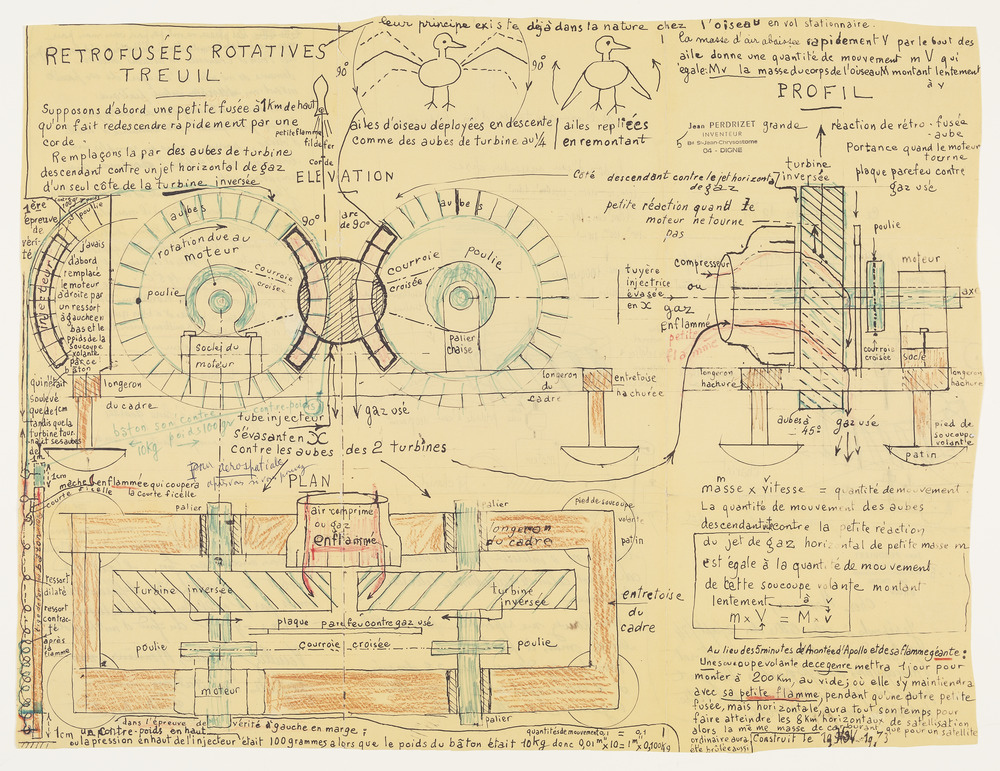 leur principe existe déjà dans la nature chez l'oiseau en vol stationnaire.
la masse d'air abaissée rapidement V par le bout des
aile donne une quantité de mouvement mV qui
égale: Mv la masse du corps de l'oiseau M montant lentement
à v
RETROFUSÉES ROTATIVES
TREUIL
90°
90°
PROFIL
Supposons d'abord une petite fusée à 1 Km de haut
qu'on fait redescendre rapidement par une
corde.
Remplaçons la par des aubes de turbine
descendant contre un jet horizontal de gaz
d'un seul côté de la turbine inversée
petite flamme
fil de fer
corde
ailes d'oiseau déployées en descente
comme des aubes de turbine au 1/4
ailes repliées
en remontant
Jean PERDRIZET
INVENTEUR
5 Bd St-Jean-Chrysostome
04 - DIGNE
grande
réaction de rétro-fusée
-aube
Portance quand le moteur
tourne
plaque parefeu contre
gaz usé
turbine
inversée
ELEVATION
Coté descendant contre le jet horizontal
de gaz
petite réaction quand le
moteur ne tourne
pas
1ère
épreuve
de
véri-
té
poulie
injecteur
j'avais
d'abord
remplacé
le moteur
à droite par
un ressort
à gauche en
bas et le
poids de la
soucoupe
volante
par ce
bâton
aubes
rotation due au
moteur
poulie
courroie
croisée
socle du
moteur
90°
arc
de 90°
aubes
courroie
croisée
poulie
palier
chaise
tuyère
injectrice
évasée
en X
compresseur
ou
gaz
Enflammé
petite
flamme
poulie
moteur
axe
courroie
croisée
socle
longeron
hachuré
longeron
hachuré
qui n'était
soulevé
que de 1cm
tandis que la
turbine tour-
nait ses aubes
de
1m
longeron
du cadre
longeron
du
cadre
entretoise
hachurée
bâton son contre-poids
10Kg poids 100gr
tube injecteur
s'évasant en X
contre les aubes des 2 turbines
gaz usé
aubes à
45°
gaz usé
pied de
soucoupe
volante
patin
PLAN
1cm
mèche enflammée qui coupera
la courte ficelle
courte ficelle
palier
air comprimé
ou gaz
enflammé
palier
longeron
du cadre
pied de soucoupe
volante
patin
turbine inversée
turbine
inversée
plaque parefeu contre gaz usé
poulie
courroie croisée
poulie
entretoise
du
cadre
moteur
palier
ressort
dilaté
ressort
contrac-
té
après
la
flamme
m V
masse x vitesse = quantité de mouvement.
La quantité de mouvement des aubes
descendant contre la petite réaction
du jet de gaz horizontal de petite masse m
est égale à la quantité de mouvement
de cette soucoupe volante montant
lentement à v
m x V = M x v
Au lieu des 5 minutes de montée d'Apollo et de sa flamme géante:
Une soucoupe volante de ce genre mettra 1 jour pour
monter à 200 Km, au vide, où elle s'y maintiendra
avec sa petite flamme, pendant qu'une autre petite
fusée, mais horizontale, aura tout son temps pour
faire atteindre les 8 Km horizontaux de satellisation
alors la même masse de carburant que pour un satellite
ordinaire aura
été brûlée aussi
Construit le
1cm
dans l'épreuve de vérité à gauche en marge;
un contre-poids en haut
ou la pression en haut de l'injecteur était 100 grammes alors que le poids du bâton était 10 Kg donc 0,01m x 10 = 1m x 0,100Kg